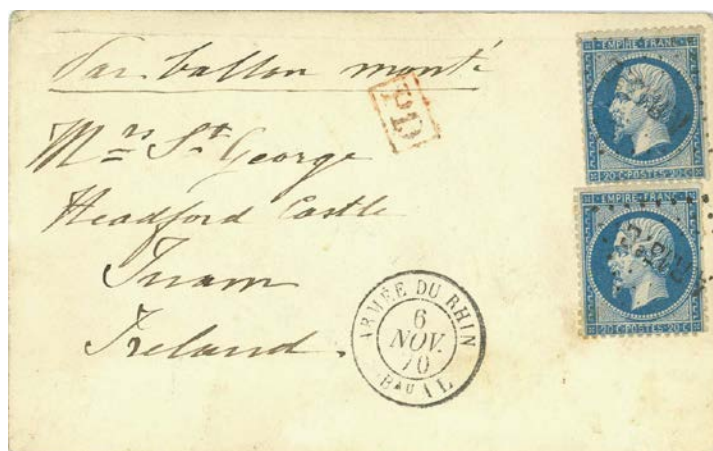 Par ballon monté
PD
Mrs St George
Headford Castle
Tuam
Ireland.
ARMÉE DU RHIN
6
NOV.
70
BAU AL
EMPIRE FRANC
20 C·POSTES·20 C
EMPIRE FRANC
20 C·POSTES·20 C